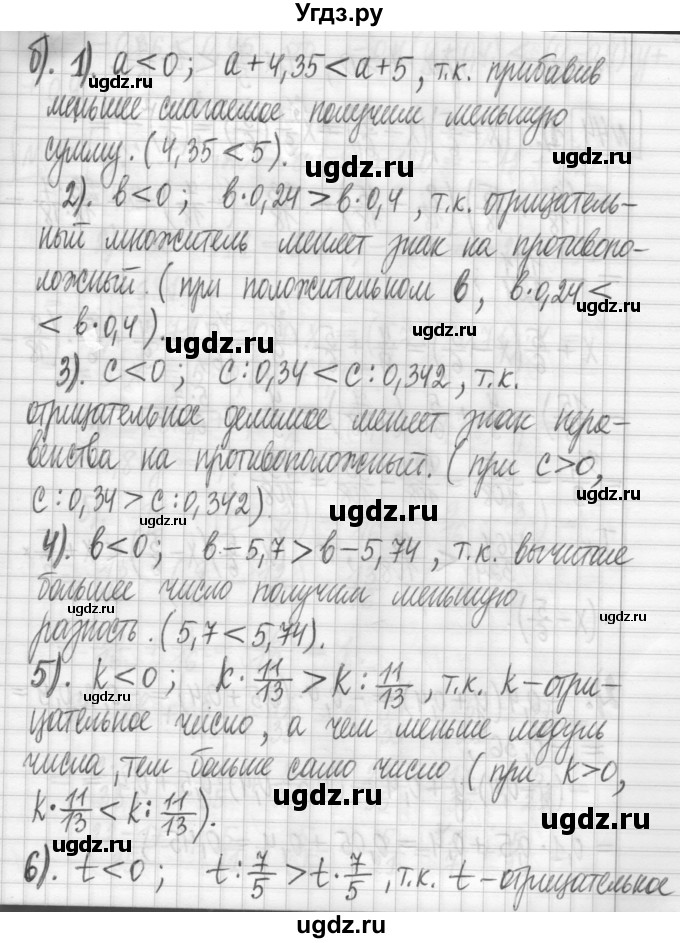 Угдз.ру
б). 1). a < 0; a + 4,35 < a + 5, т.к. прибавив
меньшее слагаемое получим меньшую
сумму. (4,35 < 5).
2). в < 0; в · 0,24 > в · 0,4, т.к. отрицатель-
ный множитель меняет знак на противопо-
ложный. (при положительном в, в · 0,24 <
< в · 0,4).
3). c < 0; c : 0,34 < c : 0,342, т.к.
отрицательное делимое меняет знак нера-
венства на противоположный. (при c > 0,
c : 0,34 > c : 0,342)
4). в < 0; в - 5,7 > в - 5,74, т.к. вычитая
большее число получим меньшую
разность. (5,7 < 5,74).
5). k < 0; k · 11/13 > k : 11/13, т.к. k - отри-
цательное число, а чем меньше модуль
числа, тем больше само число (при k > 0,
k · 11/13 < k : 11/13).
6). t < 0; t : 7/5 > t · 7/5, т.к. t - отрицательное
ugdz.ru